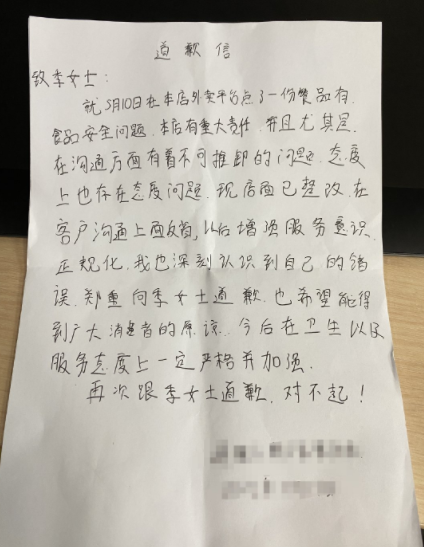 道歉信
致李女士：
就5月10日在本店外卖平台点了一份餐品有
食品安全问题.本店有重大责任.并且尤其是
在沟通方面有着不可推卸的问题.态度
上也存在态度问题.现店面已整改.在
客户沟通上面反省,以后增强服务意识
正规化.我也深刻认识到自己的错
误.郑重向李女士道歉.也希望能得
到广大消费者的原谅.今后在卫生以及
服务态度上一定严格并加强.
再次跟李女士道歉.对不起！